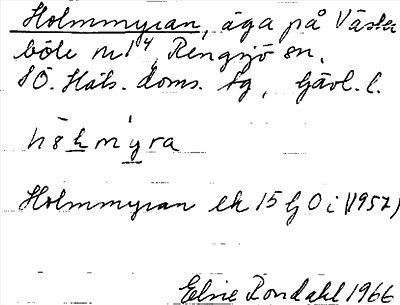 Holmmyran, äga på Väster
böle nr 1⁴, Rengsjö sn.
SÖ. Häls. doms. tg, Gävl. l.
hǒḷmyra
Holmmyran ek 15 G Ö i (1957)
Elsie Rondahl 1966